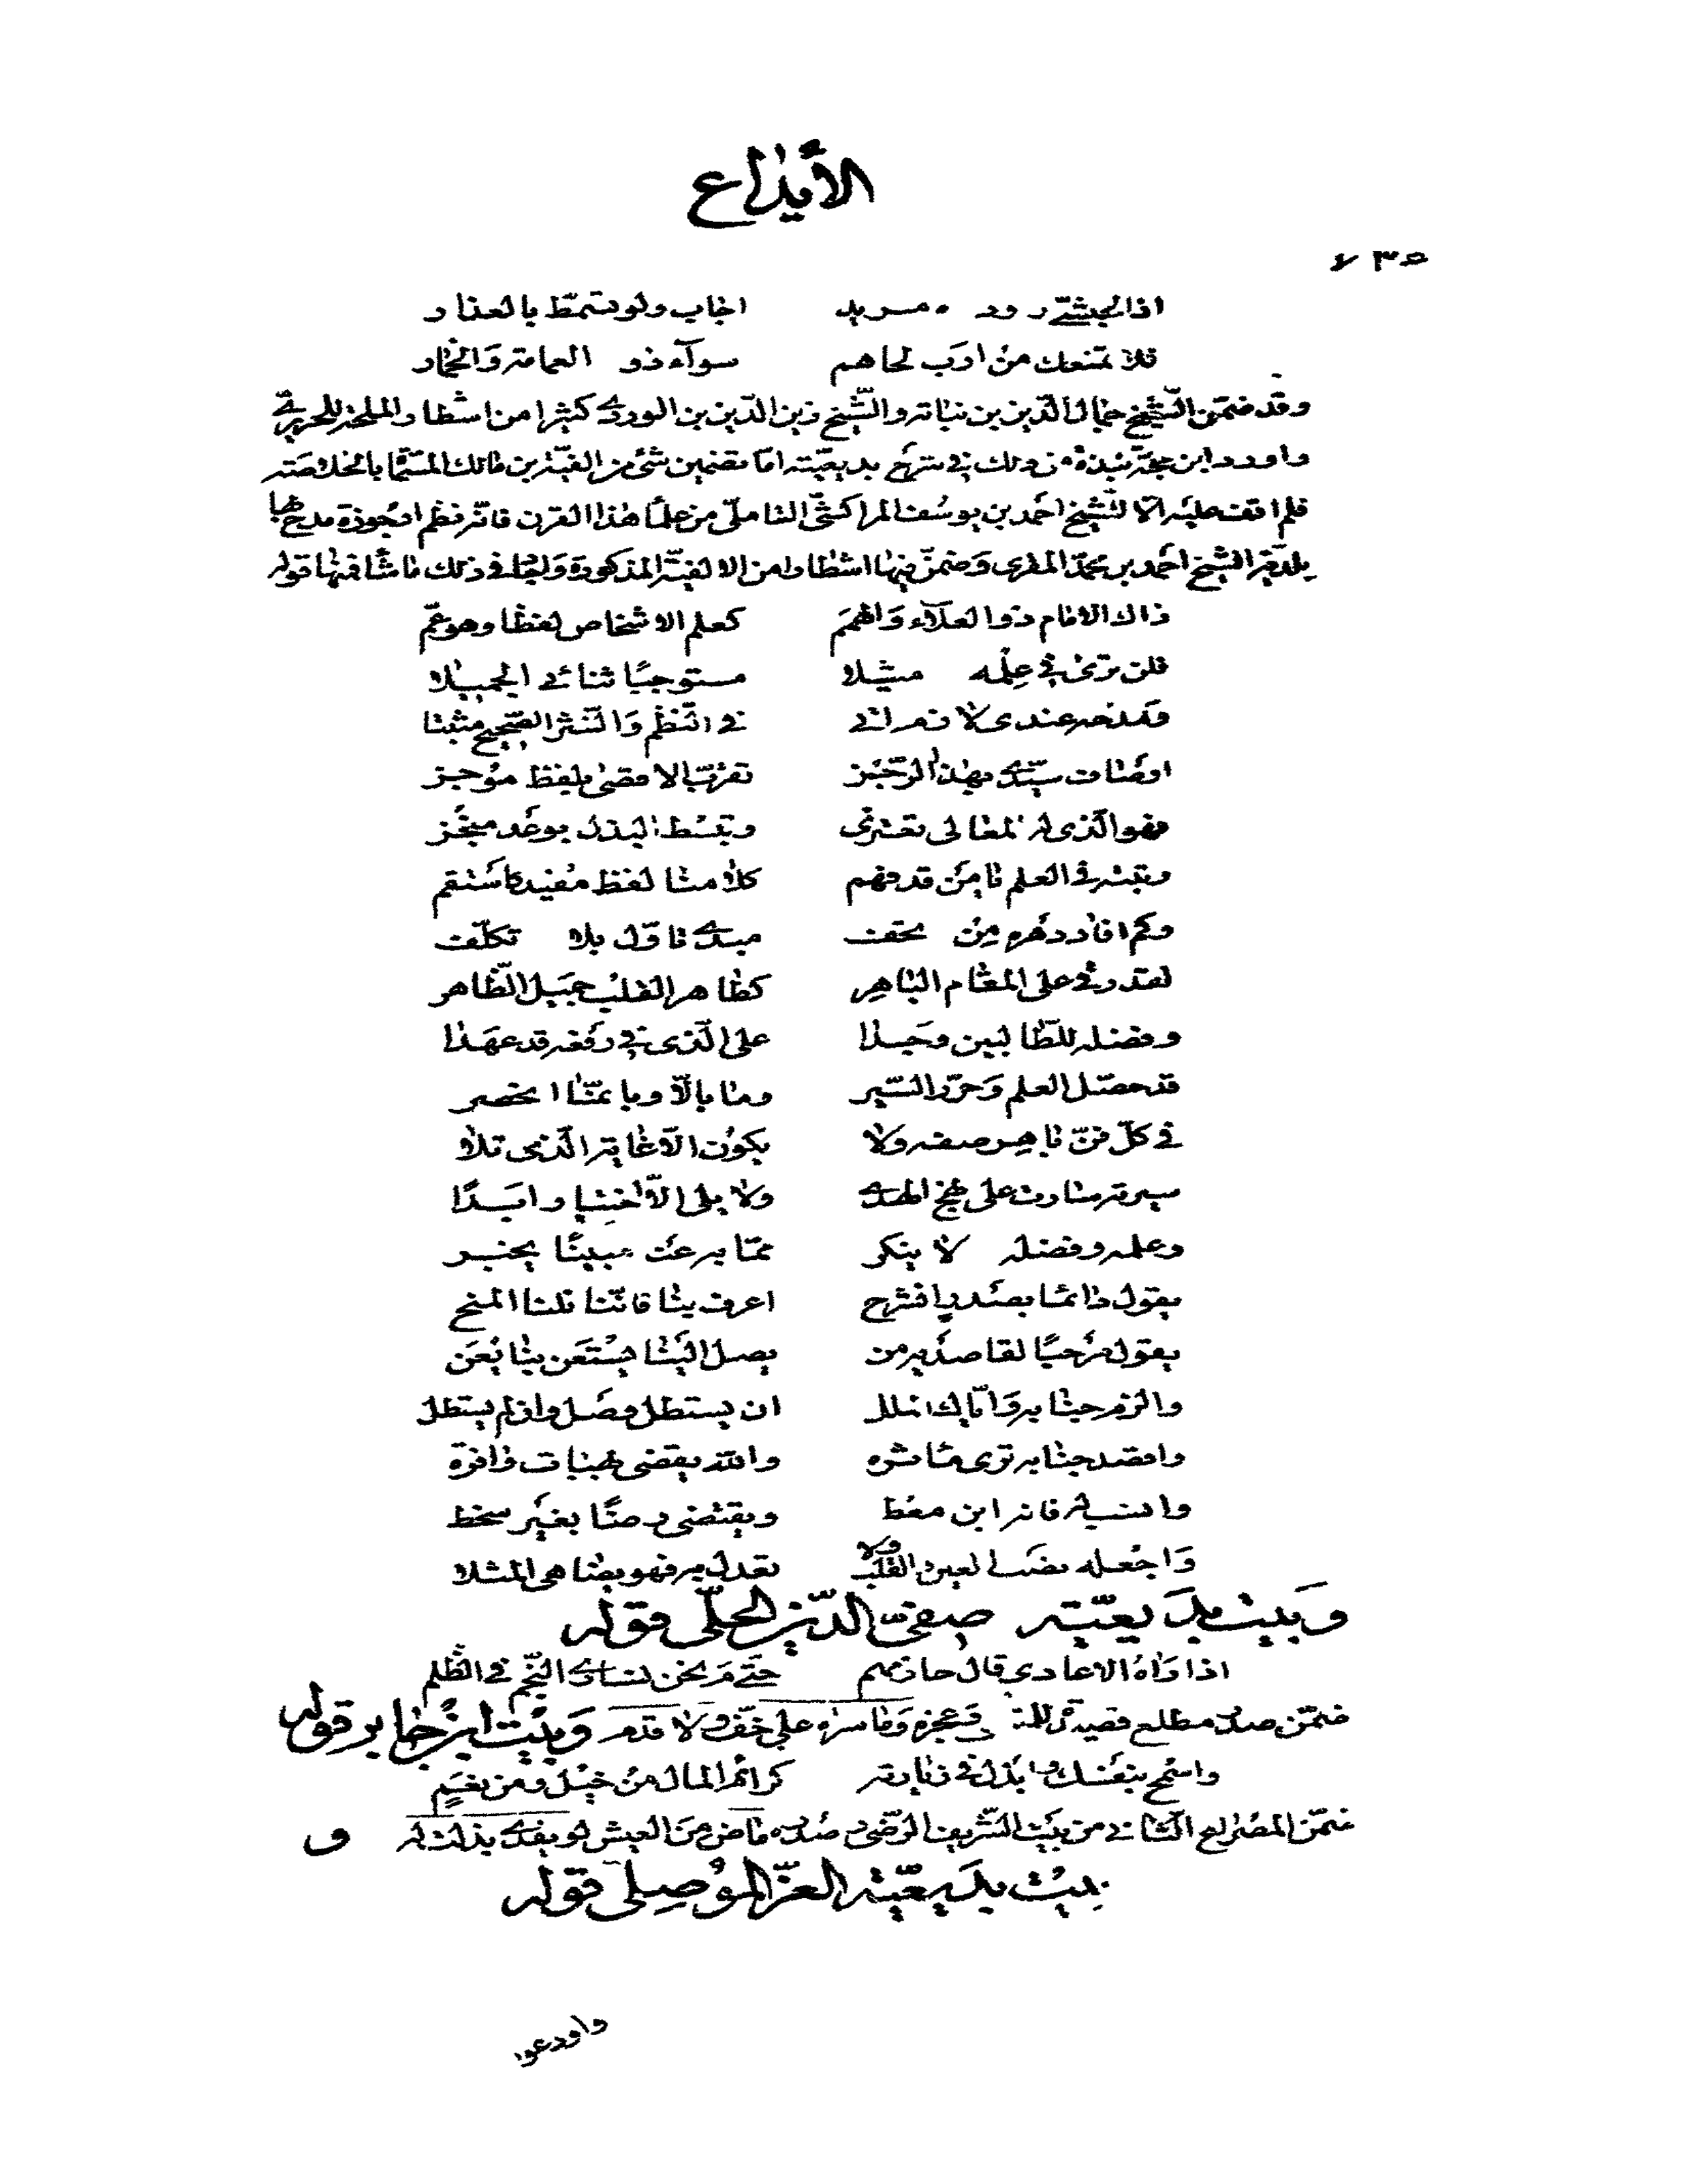 الأيداع
٧٣٥
اجاب ولو تسمّط بالعذار
فلا تمنعك من ارب لحاهم سوآء ذو العمامة وَالخمار
وقد ضمّن الشيخ جمال الدّين بن نباتة والشّيخ زين الدّين بن الوردي كثيرا من اشطار الملحة للحريري
واورد ابن حجّة نبذة من ذلك في شرح بديعيّته امّا تضمين شئ من الفيّة بن مالك المسمّاة بالخلاصة
فلم اقف عليه الّا للشّيخ أحمد بن يوسُف المراكشّى التاملّى من علمآء هذا القرن فانّه نظم ارجُوزة مدح بها
بلديّه الشيخ احمد بن محمّد المقرى وَضمّن فيها اشطارا من الالفيّة المذكورة وَاجاد في ذلك ماشآء فمنها قوله
ذاك الامام ذوا لعلآء وَالهمَم كعلم الاشخاص لفظا وهو عمّ
فلن ترىٰ في عِلمه مثيلا مستوجبًا ثنائي الجميلا
ومدحه عندى لازم اتى في النّظم وَالنّثر الصّحيح مثبتا
اوصاف سيّدي بهٰذا الرّجَز تقرّب الاقصىٰ بلفظ مُوجز
فهو الّذى له المعالى تعتزى وتبسُط البذل بوعد منجَز
رتبته في العلم يا مَن قد فهم كلامنا لفظ مُفيد كاستَقم
وكم افاد دهره مِن تحف مبدي تاوّل بلا تكلّف
لقد رقى على المقام البٰاهِر كطاهر القلب جميل الظّاهر
وفضله للطّالبين وجَدا على الّذى في رفعه قد عهدا
قد حصّل العلم وَحرّر السّير وما بالّا وبانّما انحصر
في كلّ فنّ ماهر صفه ولا يكون الّا غاية الّذى تلا
سيرته سارت على نهج الهدي ولا يلى الّا اختيارا ابَدًا
وعلمه وفضله لا ينكر ممّا به عنه مبينًا يخبر
يقول دائمًا بصَدر انشرح اعرف بنا فانّنا نلنا المنح
يقول مرحبًا لقاصديه من يصل الَينا يستعن بنا يُعَن
والزم جنابه وَايّاك الملل ان يستطل وصل وان لم يستطل
واقصد جنابه ترى مآثره واللّه يقضى بهبات وافرة
وانسب له فانه ابن معط ويقتضى رضًا بغير سخط
وَاجعله نصب العين والقلب ولا تعدل به فهو يضاهى المثلا
وَبيت بديعيّته صفىّ الدّين الحلّى قوله
اذا رَاهُ الاعادي قال حازمهم حتّى مَ نحن نسارى النّجم في الظّلم
ضمّن صدر مطلع قصيدة للمتنبي وعجزه وَما سراه على خفّ ولا قدم وَبيت ابن جابر قوله
واسمح بنفسك وابذل في زيارته كرائم المال من خيل ومن نعَمٍ
ضمّن المصراع الثاني من بيت الشّريف الرّضى وصدره ماض من العيش لو يفدي بذلت له و
بيت بديعيّة العزّ الموصلى قوله
واودعوا